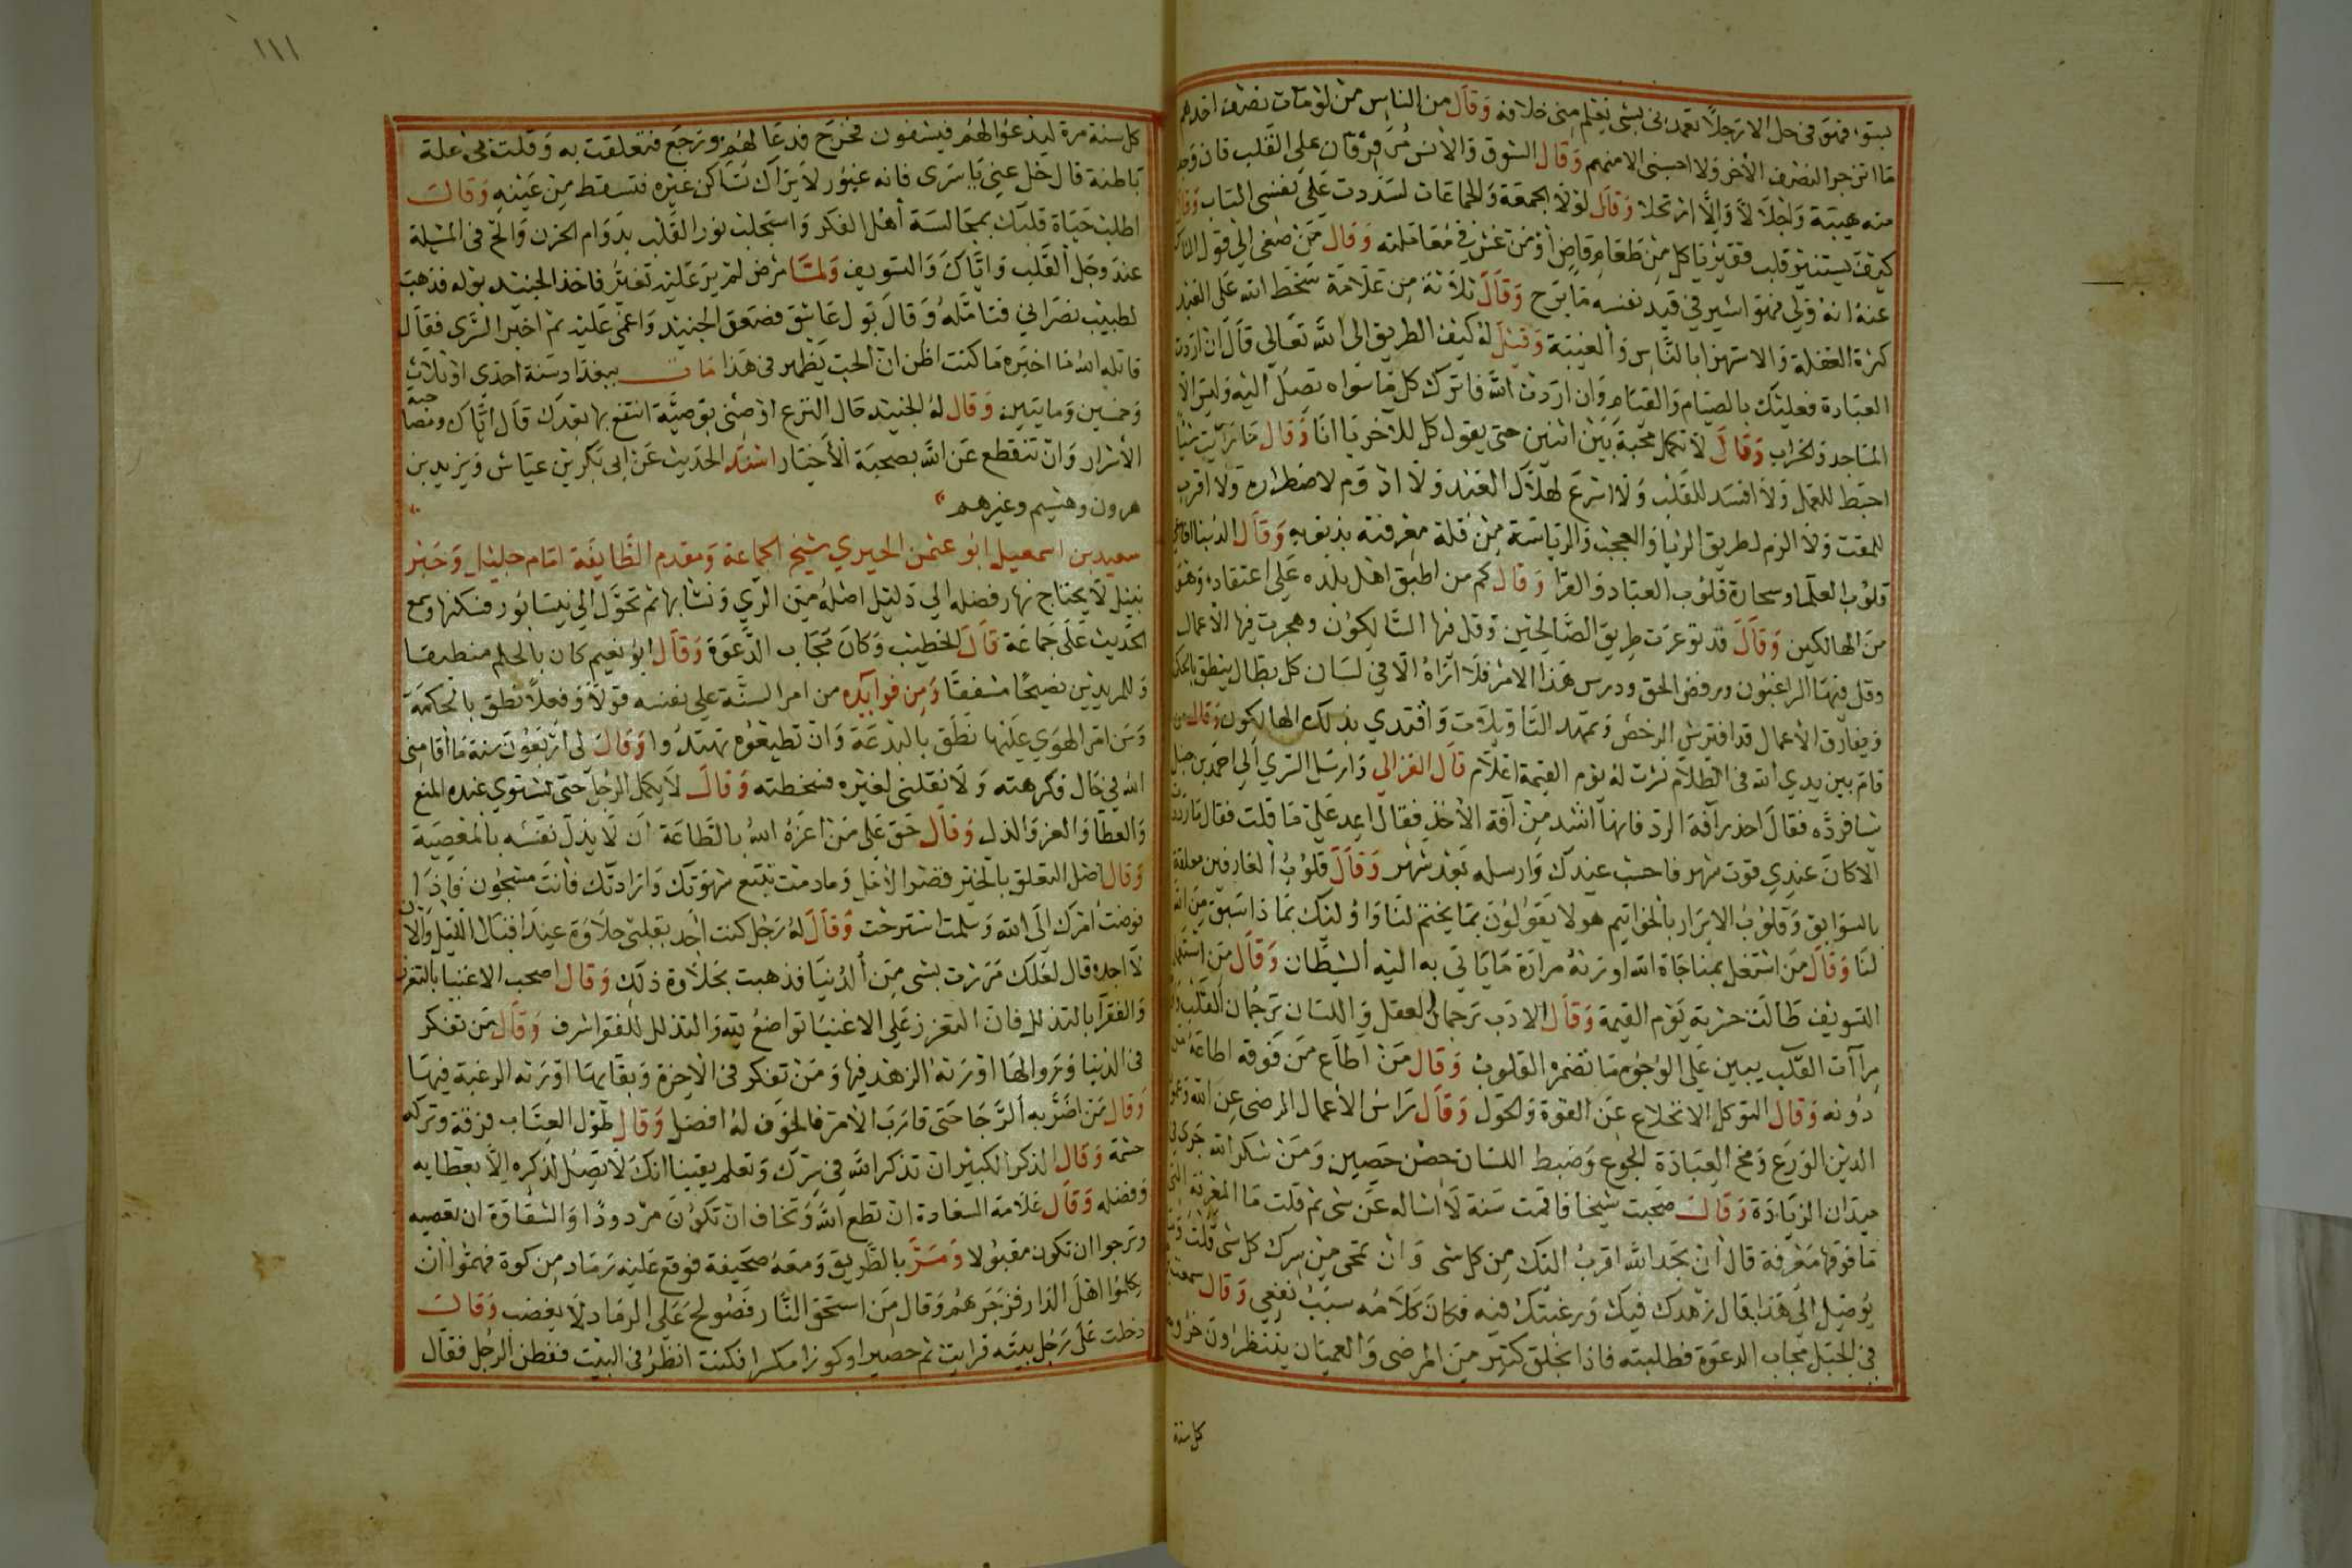 بسوء فهو في حل الا رجلا تعمدني بشي يعلم مني خلافه وقال من الناس من لو مات نصف احدهم
ما انزجر النصف الآخر ولا احسبني الا منهم وقال الشوق والانس يرفرفان على القلب فان وجد
منه هيبة واجلالا والا ارتحلا وقال لولا الجمعة والجماعات لسددت على نفسي الباب وقال
كيف يستنير قلب فقير ياكل من طعام قاض او من غش في معاملته وقال من صغى الى قول الناس
عنه انه ولي فهو اسير في قيد نفسه ما برح وقال ثلاثة من علامة سخط الله على العبد
كثرة الغفلة والاستهزا بالناس والغيبة وقيل له كيف الطريق الى الله تعالى قال ان اردت
العبادة فعليك بالصيام والقيام وان اردت الله فاترك كل ما سواه تصل اليه وليس الا
المساجد والخراب وقال لا تكمل محبة بين اثنين حتى يقول كل للآخر يا انا وقال ما رايت شيئا
احبط للعمل ولا افسد للقلب ولا اسرع لهلاك العبد ولا ادوم لاضطراره ولا اقرب
للمقت ولا الزم لطريق الريا والعجب والرياسة من قلة معرفته بذنوبه وقال الدنيا افاعي
قلوب العلما وسحارة قلوب العباد والقرا وقال كم من اطبق اهل بلده على اعتقاده وهو
من الهالكين وقال قد توعرت طريق الصالحين وقل فيها السالكون وهجرت فيها الاعمال
وقل فيها الراغبون ورفض الحق ودرس هذا الامر فلا اراه الا في لسان كل بطال ينطق بالحكمة
ويفارق الاعمال قد افترش الرخص وتمهد التاويلات واقتدي بذلك الهالكون وقال من
قام بين يدي الله في الظلام نشرت له يوم القيمة اعلام قال الغزالي وارسل السري الى احمد بن حنبل
شيا فرده فقال احذر آفة الرد فانها اشد من آفة الاخذ فقال اعد علي ما قلت فقال ما رددت
الا كان عندي قوت شهر فاحبسه عندك وارسله بعد شهر وقال قلوب العارفين معلقة
بالسوابق وقلوب الابرار بالخواتيم هولا يقولون بما يختم لنا واوليك بما ذا سبق من الله
لنا وقال من اشتغل بمناجاة الله اورثه مرارة ما ياتي به اليه الشيطان وقال من استعمل
التسويف طالت حسرته يوم القيمة وقال الادب ترجمان العقل واللسان ترجمان القلب
مرآات القلب يبين على الوجوه ما تضمره القلوب وقال من اطاع من فوقه اطاعه من
دونه وقال التوكل الانخلاع عن القوة والحول وقال راس الاعمال الرضى عن الله وعمود
الدين الورع ومخ العبادة الجوع وضبط اللسان حصن حصين ومن شكر الله جرى في
ميدان الزيادة وقال صحبت شيخا فاقمت سنة لا اساله عن شي ثم قلت ما المعرفة التي
ما فوقها معرفة قال ان تجد الله اقرب اليك من كل شي وان تمحى من سرك كل شي قلت
يوصل الى هذا قال زهدك فيك ورغبتك فيه فكان كلامه سبب نفعي وقال سمعت
في الجبل مجاب الدعوة فطلبته فاذا بخلق كثير من المرضى والعميان ينتظرون خروجه
كل سنة
١١١
كل سنة مرة ليدعوا لهم فيشفون فخرج فدعا لهم ورجع فتعلقت به وقلت بي علة
باطنة قال خل عني يا سري فانه غيور لا يراك تساكن غيره فتسقط من عينه وقال
اطلب حياة قلبك بمجالسة أهل الفكر واستجلب نور القلب بدوام الحزن والح في المسئلة
عند وجل القلب واياك والتسويف ولما مرض لم ير عليه تغير فاخذ الجنيد بوله فذهب
لطبيب نصراني فتامله وقال بول عاشق فصعق الجنيد واغمي عليه ثم اخبر السري فقال
قاتله الله ما اخبره ما كنت اظن ان الحب يظهر في هذا مات ببغداد سنة احدي او ثلاث
وخمسين ومايتين وقال له الجنيد حال النزع اوصني بوصية انتفع بها بعدك قال اياك ومصاحبة
الأشرار وان تنقطع عن الله بصحبة الأخيار اسند الحديث عن ابي بكر بن عياش ويزيد بن
هرون وهشيم وغيرهم
سعيد بن اسمعيل ابو عثمن الحيري شيخ الجماعة ومقدم الطايفة امام جليل وحبر
نبيل لا يحتاج نهار فضله الى دليل اصله من الري ونشا بها ثم تحول الى نيسابور فسكنها وسمع
الحديث على جماعة قال الخطيب وكان مجاب الدعوة وقال ابو نعيم كان بالحلم منطيقا
وللمريدين نصيحا مشفقا ومن فوايده من امر السنة على نفسه قولا وفعلا نطق بالحكمة
ومن امر الهوي عليها نطق بالبدعة وان تطيعوه تهتدوا وقال لي اربعون سنة ما اقامني
الله في حال فكرهته ولا نقلني لغيره فسخطته وقال لا يكمل الرجل حتى تستوي عنده المنع
والعطا والعز والذل وقال حق على من اعزه الله بالطاعة ان لا يذل نفسه بالمعصية
وقال اصل التعلق بالخير قصر الأمل وما دمت تتبع شهوتك وارادتك فأنت مسجون فاذا
فوضت امرك الى الله وسلمت استرحت وقال له رجل كنت اجد بقلبي حلاوة عند اقبال الليل والآن
لا اجده قال لعلك مررت بشي من الدنيا فذهبت بحلاوة ذلك وقال اصحب الاغنيا بالتعزز
والفقرا بالتذلل فان التعزز على الاغنيا تواضع لله والتذلل للفقرا شرف وقال من تفكر
في الدنيا وزوالها اورثه الزهد فيها ومن تفكر في الآخرة وبقايها اورثه الرغبة فيها
وقال من اضر به الرجا حتى قارب الامن فالخوف له افضل وقال طول العتاب فرقة وتركه
حشمة وقال الذكر الكبير ان تذكر الله في سرك وتعلم يقينا انك لا تصل لذكره الا بعطايه
وفضله وقال علامة السعادة ان تطع الله وتخاف ان تكون مردودا والشقاوة ان تعصيه
وترجوا ان تكون مقبولا ومر بالطريق ومعه صحيفة فوقع عليه رماد من كوة فهموا ان
يكلموا اهل الدار فزجرهم وقال من استحق النار فصولح على الرماد لا يغضب وقال
دخلت على رجل بيته فرايت ثم حصيرا وكوزا مكسرا فكنت انظر في البيت ففطن الرجل فقال